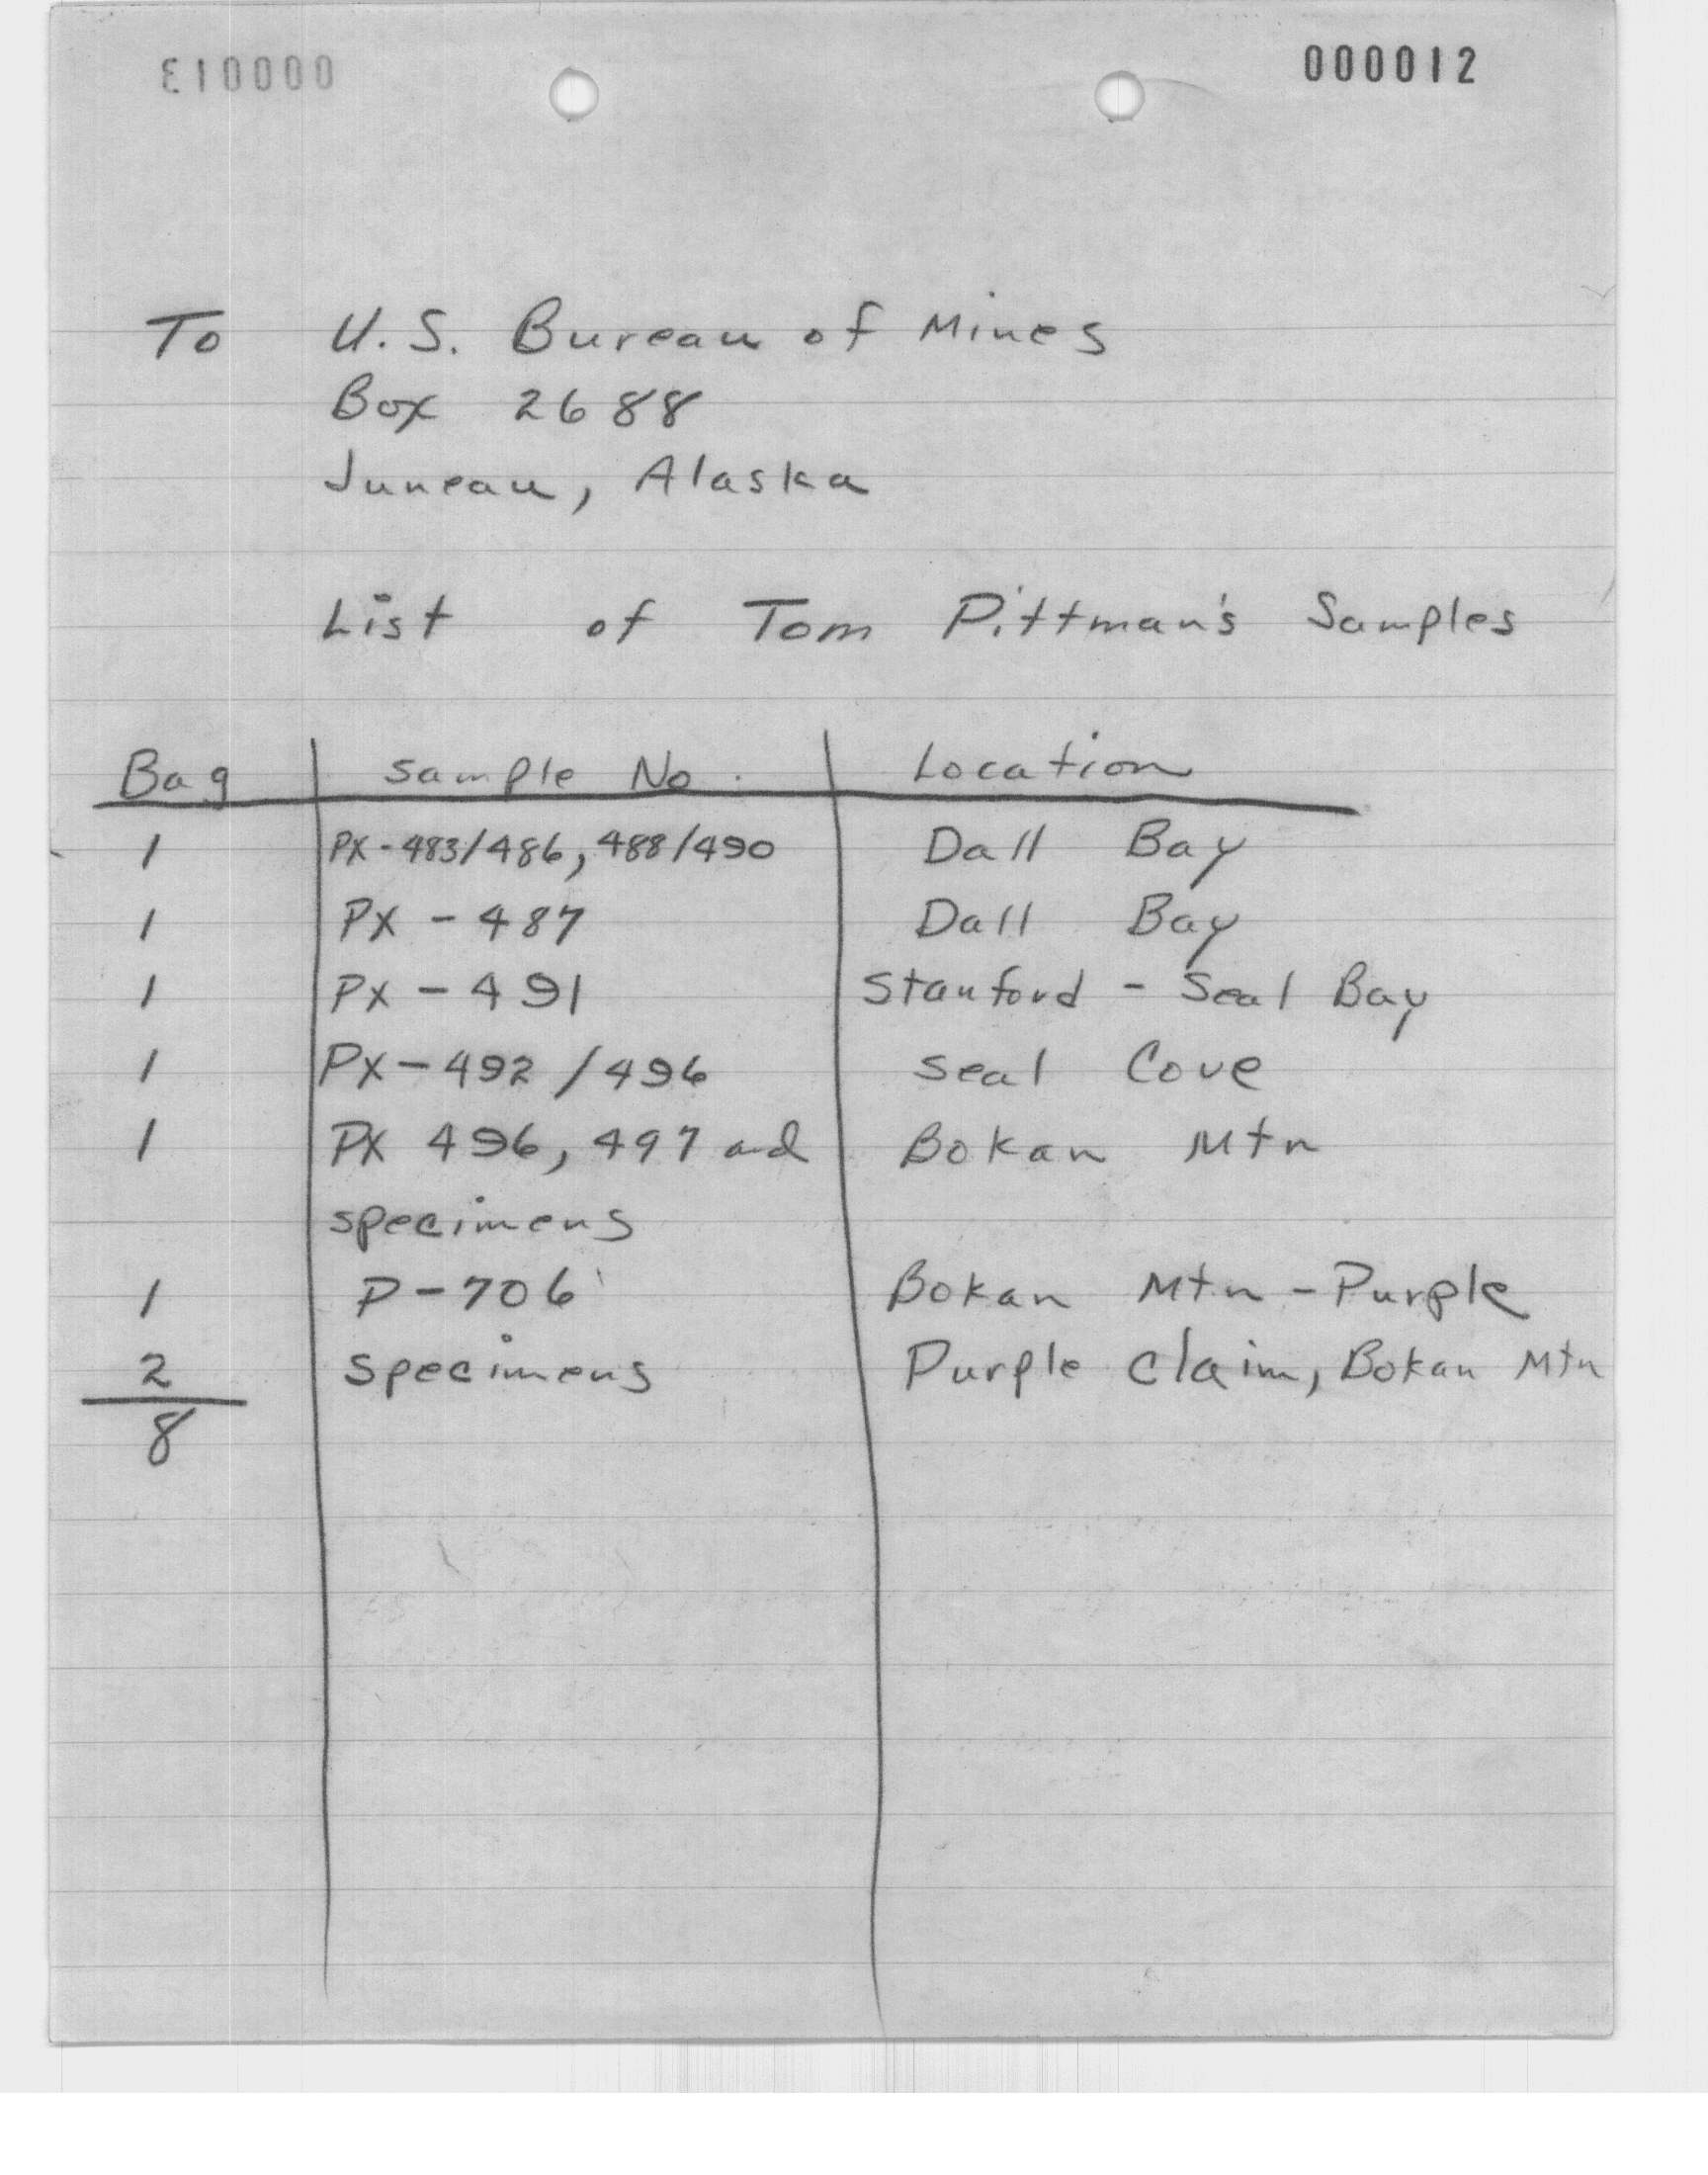 000013 000012
To U.S. Bureau of Mines
Box 2688
Juneau, Alaska
List of Tom Pittman's Samples
Bag Sample No. Location
1 PX-483/486, 488/490 Dall Bay
1 PX-487 Dall Bay
1 PX-491 Stanford - Seal Bay
1 PX-492/496 Seal Cove
1 PX 496, 497 and Bokan Mtn
specimens
1 P-706 Bokan Mtn - Purple
2 Specimens Purple Claim, Bokan Mtn
8